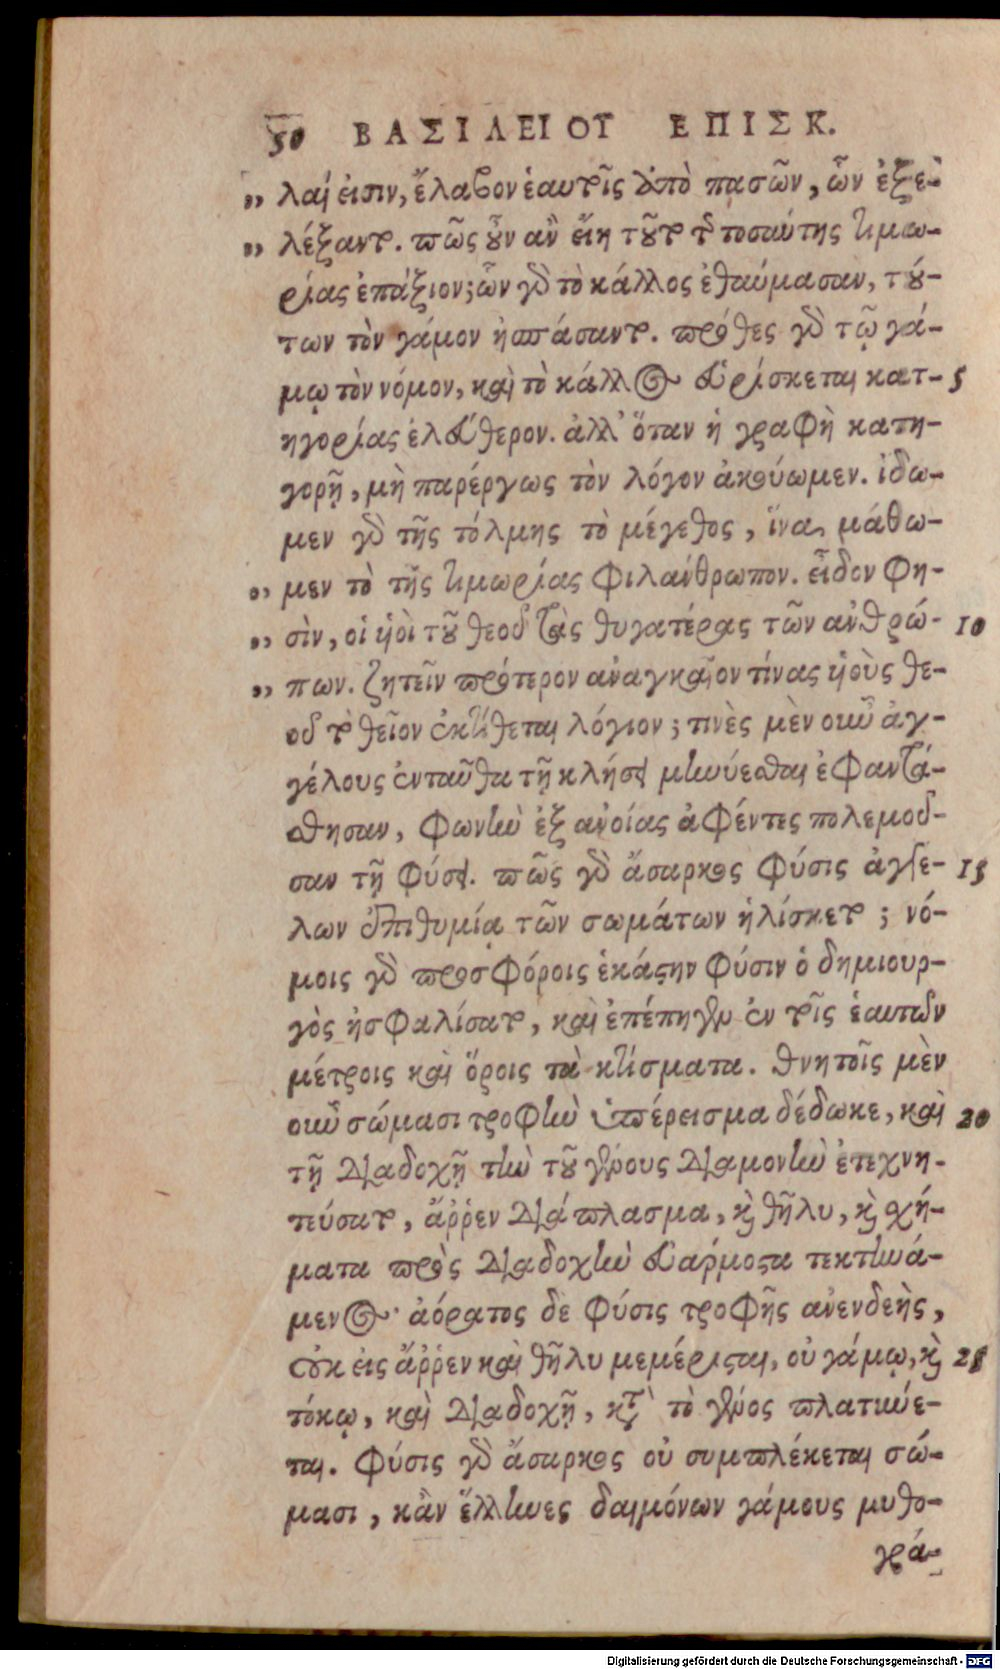 50 ΒΑΣΙΛΕΙΟΥ ΕΠΙΣΚ.
„ λαί εἰσιν, ἔλαβον ἑαυτοῖς ἀπὸ πασῶν, ὧν ἐξε-
„ λέξαντο. πῶς οὖν ἂν εἴη τοῦτο τῆς τοσαύτης τιμω-
ρίας ἐπάξιον; ὧν γὰρ τὸ κάλλος ἐθαύμασαν, τού-
των τὸν γάμον ἠσπάσαντο. πρόθες γὰρ τῷ γά-
μῳ τὸν νόμον, καὶ τὸ κάλλος εὑρίσκεται κατ- 5
ηγορίας ἐλεύθερον. ἀλλ' ὅταν ἡ γραφὴ κατη-
γορῇ, μὴ παρέργως τὸν λόγον ἀκούωμεν. ἰδω-
μεν γὰρ τῆς τόλμης τὸ μέγεθος, ἵνα μάθω-
„ μεν τὸ τῆς τιμωρίας φιλάνθρωπον. εἶδον φη-
„ σὶν, οἱ υἱοὶ τοῦ θεοῦ τὰς θυγατέρας τῶν ἀνθρώ- 10
„ πων. ζητεῖν πρότερον ἀναγκαῖον τίνας υἱοὺς θε-
οῦ τὸ θεῖον ἐκτίθεται λόγιον; τινὲς μὲν οὖν ἀγ-
γέλους ἐνταῦθα τῇ κλήσει μηνύεσθαι ἐφαντά-
σθησαν, φωνὴν ἐξ ἀνοίας ἀφέντες πολεμοῦ-
σαν τῇ φύσει. πῶς γὰρ ἄσαρκος φύσις ἀγγέ- 15
λων ἐπιθυμίᾳ τῶν σωμάτων ἡλίσκετο; νό-
μοις γὰρ προσφόροις ἑκάστην φύσιν ὁ δημιουρ-
γὸς ἠσφαλίσατο, καὶ ἐπέπηγεν ἐν τοῖς ἑαυτῶν
μέτροις καὶ ὅροις τὰ κτίσματα. θνητοῖς μὲν
οὖν σώμασι τροφὴν ὑπέρεισμα δέδωκε, καὶ 20
τῇ διαδοχῇ τὴν τοῦ γένους διαμονὴν ἐτεχνη-
τεύσατο, ἄῤῥεν διάπλασμα, καὶ θῆλυ, καὶ σχή-
ματα πρὸς διαδοχὴν εὐάρμοστα τεκτηνά-
μενος· ἀόρατος δε φύσις τροφῆς ἀνενδεὴς,
οὐκ εἰς ἄῤῥεν καὶ θῆλυ μεμέρισται, οὐ γάμῳ, καὶ 25
τόκῳ, καὶ διαδοχῇ, κατὰ τὸ γένος πλατύνε-
ται. φύσις γὰρ ἄσαρκος οὐ συμπλέκεται σώ-
μασι, κἂν ἕλληνες δαιμόνων γάμους μυθο-
γρά-
Digitalisierung gefördert durch die Deutsche Forschungsgemeinschaft - DFG